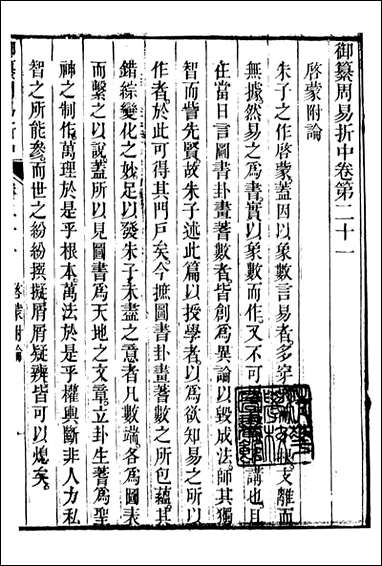 御纂周易折中卷第二十一
啓蒙附論
朱子之作啓蒙蓋因以象數言易者多穿 支離而
無據然易之爲書實以象數而作又不可 講也且
在當日言圖書卦畫蓍數者皆創爲異論以毀成法師其獨
智而訾先賢故朱子述此篇以授學者以爲欲知易之所以
作者於此可得其門戶矣今摭圖書卦畫蓍數之所包蘊其
錯綜變化之妙足以發朱子未盡之意者凡數端各爲圖表
而繫之以說蓋所以見圖書爲天地之文章立卦生蓍爲聖
神之制作萬理於是乎根本萬法於是乎權輿斷非人力私
智之所能參而世之紛紛撰擬屑屑疑辨皆可以熄矣
御纂周易折中
啓蒙附論